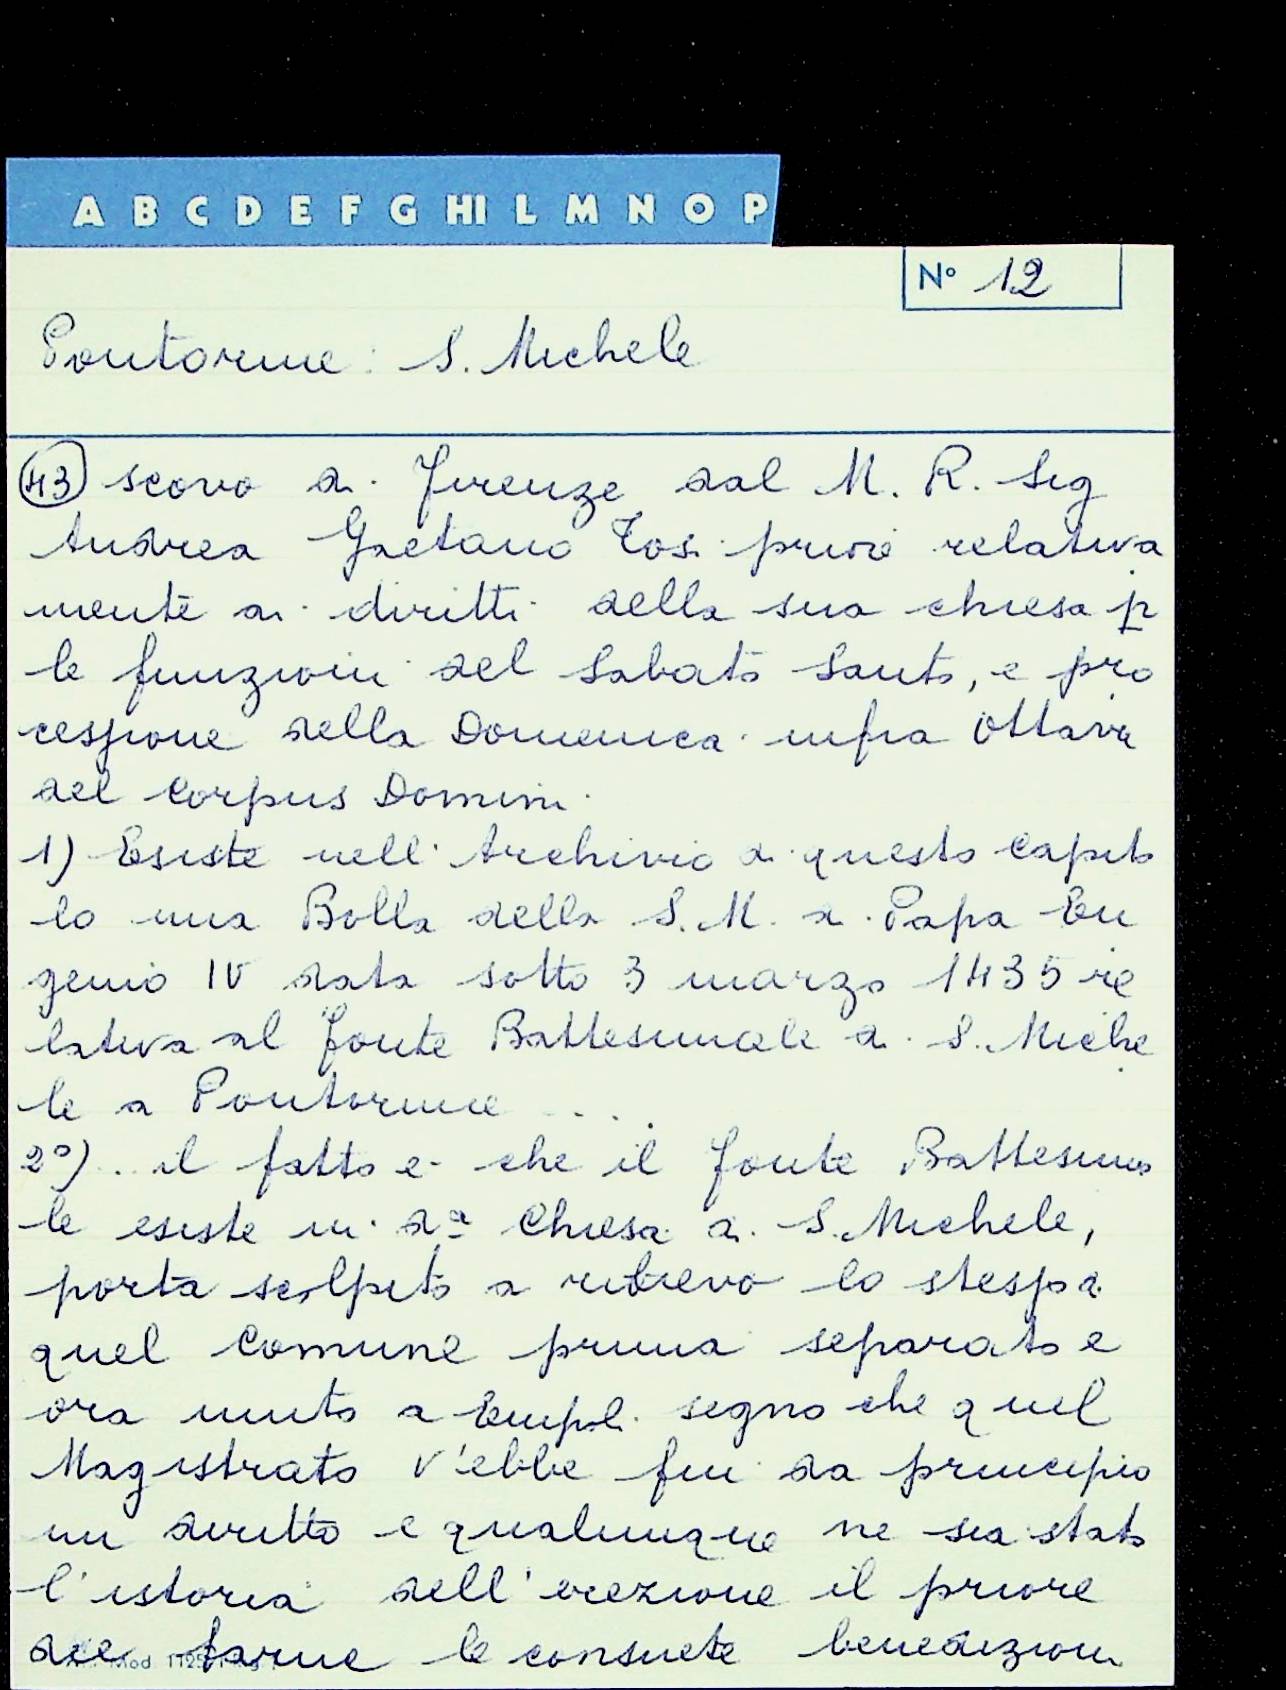 A B C D E F G HI L M N O P
N° 12
Pontorme: S. Michele
43 scovo di Firenze dal M. R. Sig
Andrea Gaetano Tosi priore relativa
mente ai diritti della sua chiesa p
le funzioni del Sabato Santo, e pro
cessione della Domenica infra Ottava
del Corpus Domini.
1) Esiste nell'Archivio di questo Capito
lo una Bolla della S.M. di Papa Eu
genio IV data sotto 3 marzo 1435 re
lativa al fonte Battesimale di S. Miche
le a Pontorme ....
2°).. il fatto è che il fonte Battesima
le esiste in da Chiesa di S. Michele,
porta scolpito a rilievo lo di
quel Comune prima separato e
ora unito a Empoli segno che quel
Magistrato v'ebbe fin da principio
un diritto e qualunque ne sia stata
l'istoria dell'erezione il priore
dee farne le consuete benedizioni
Mod. 1125